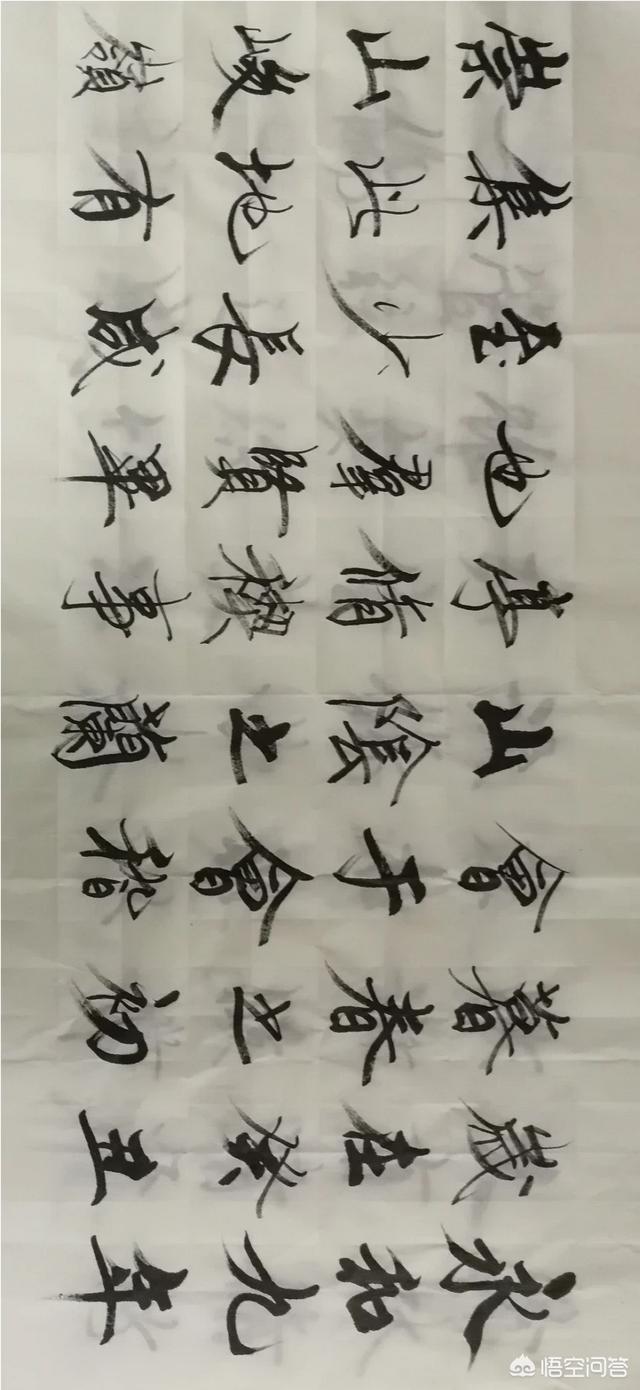 永和九年
歲在癸丑
暮春之初
會于會稽
山陰之蘭
亭脩禊事
也羣賢畢
至少長咸
集此地有
崇山峻領
悟空问答